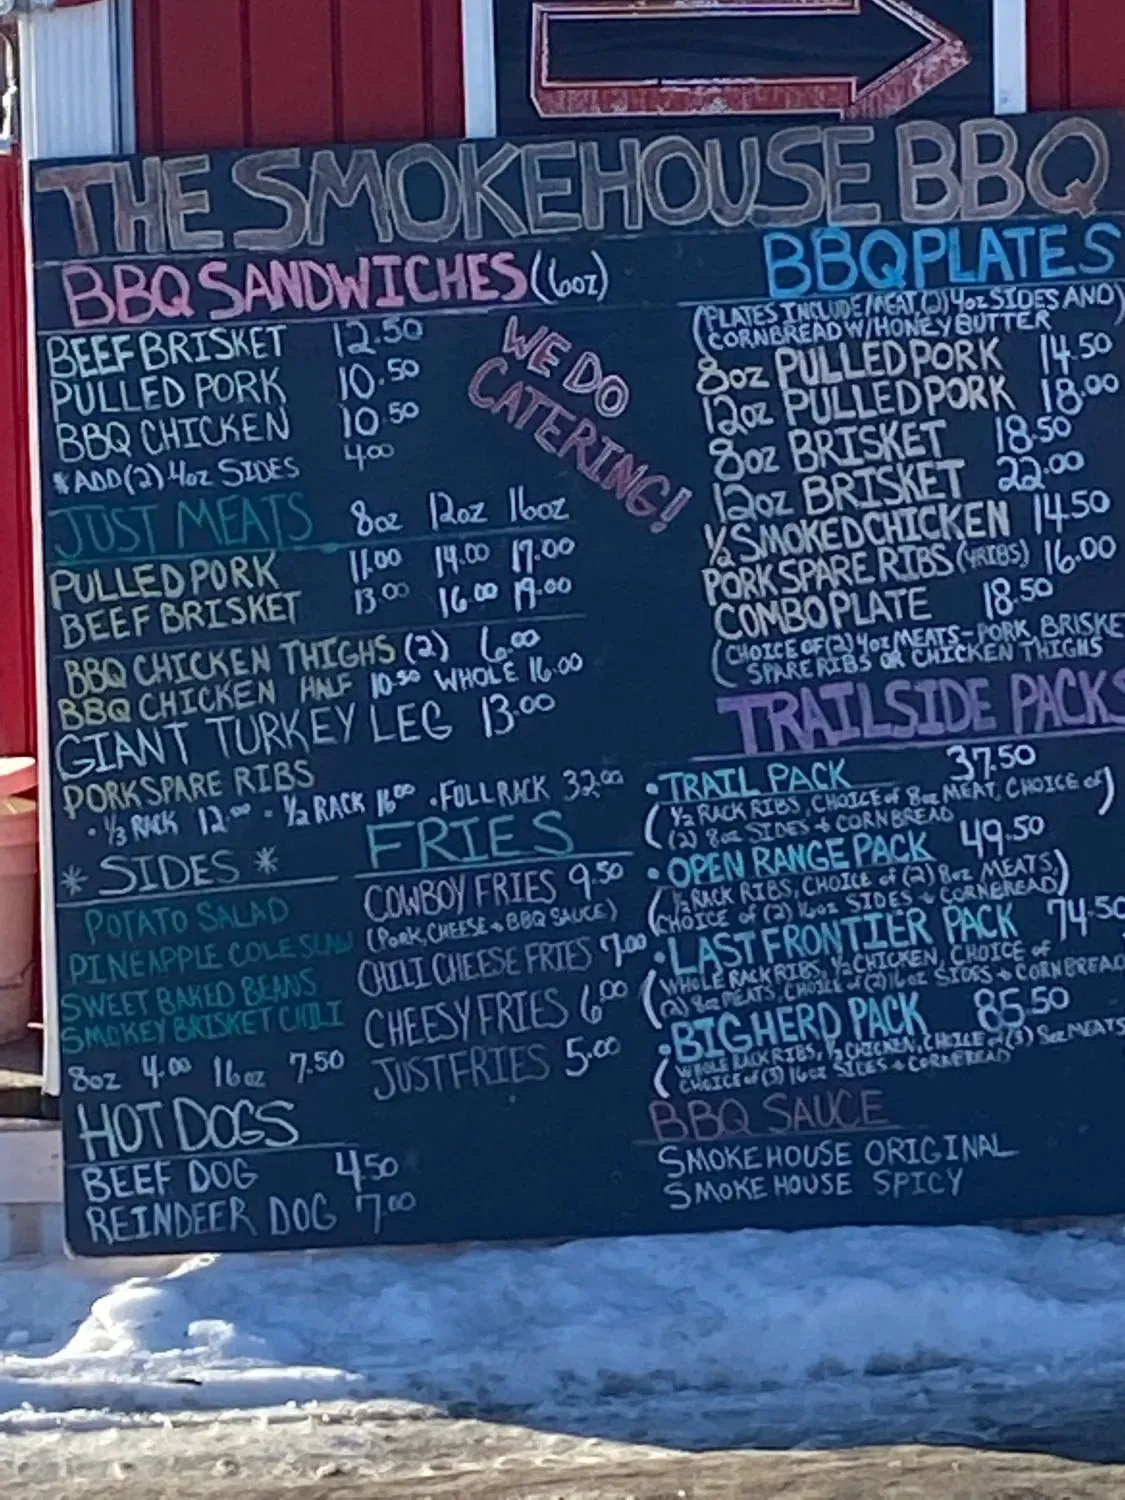 THE SMOKEHOUSE BBQ
BBQ SANDWICHES (6oz)
BEEF BRISKET 12.50
PULLED PORK 10.50
BBQ CHICKEN 10.50
*ADD (2) 4oz SIDES 4.00
WE DO
CATERING!
JUST MEATS 8oz 12oz 16oz
PULLED PORK 11.00 14.00 17.00
BEEF BRISKET 13.00 16.00 19.00
BBQ CHICKEN THIGHS (2) 6.00
BBQ CHICKEN HALF 10.50 WHOLE 16.00
GIANT TURKEY LEG 13.00
PORK SPARE RIBS
• 1/3 RACK 12.00 • 1/2 RACK 16.00 • FULL RACK 32.00
* SIDES *
POTATO SALAD
PINEAPPLE COLE SLAW
SWEET BAKED BEANS
SMOKEY BRISKET CHILI
8oz 4.00 16oz 7.50
HOT DOGS
BEEF DOG 4.50
REINDEER DOG 7.00
FRIES
COWBOY FRIES 9.50
(PORK, CHEESE + BBQ SAUCE)
CHILI CHEESE FRIES 7.00
CHEESY FRIES 6.00
JUST FRIES 5.00
BBQ PLATES
(PLATES INCLUDE MEAT, (2) 4oz SIDES AND
CORNBREAD W/ HONEY BUTTER)
8oz PULLED PORK 14.50
12oz PULLED PORK 18.00
8oz BRISKET 18.50
12oz BRISKET 22.00
1/2 SMOKED CHICKEN 14.50
PORK SPARE RIBS (4 RIBS) 16.00
COMBO PLATE 18.50
(CHOICE OF (2) 4oz MEATS - PORK, BRISKE
SPARE RIBS OR CHICKEN THIGHS
TRAILSIDE PACKS
• TRAIL PACK 37.50
(1/2 RACK RIBS, CHOICE of 8oz MEAT, CHOICE of
(2) 8oz SIDES + CORNBREAD)
• OPEN RANGE PACK 49.50
(1/2 RACK RIBS, CHOICE of (2) 8oz MEATS,
CHOICE of (2) 16oz SIDES + CORNBREAD)
• LAST FRONTIER PACK 74.50
(WHOLE RACK RIBS, 1/2 CHICKEN, CHOICE of
(2) 8oz MEATS, CHOICE of (2) 16oz SIDES + CORNBREAD
• BIG HERD PACK 85.50
(WHOLE RACK RIBS, 1/2 CHICKEN, CHOICE of (3) 8oz MEATS
CHOICE of (3) 16oz SIDES + CORNBREAD
BBQ SAUCE
SMOKEHOUSE ORIGINAL
SMOKEHOUSE SPICY